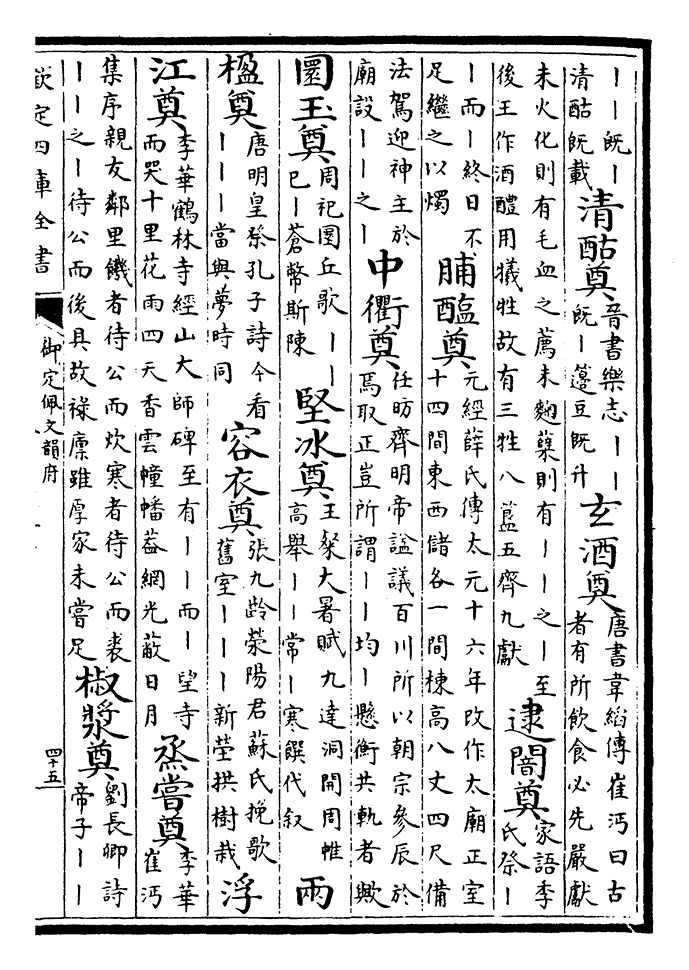 丨丨既丨
清酤既載
清酤奠
晉書樂志丨丨
既丨籩豆既升
玄酒奠
唐書韋縚傳崔沔曰古
者有所飲食必先嚴獻
未火化則有毛血之薦未麴糵則有丨丨之丨至
後王作酒醴用犧牲故有三牲八簋五齊九獻
逮闇奠
家語李
氏祭丨
丨而丨終日不
足繼之以燭
脯醢奠
元經薛氏傳太元十六年改作太廟正室
十四間東西儲各一間棟高八丈四尺備
法駕迎神主於
廟設丨丨之丨
中衢奠
任昉齊明帝諡議百川所以朝宗參辰於
焉取正豈所謂丨丨均丨懸衡共軌者歟
圜玉奠
周祀圜丘歌丨丨
已丨蒼幣斯陳
堅冰奠
王粲大暑賦九達洞開周帷
高舉丨丨常丨寒饌代叙
兩
楹奠
唐明皇祭孔子詩今看
丨丨丨當與夢時同
容衣奠
張九齡滎陽君蘇氏挽歌
舊室丨丨丨新塋拱樹栽
浮
江奠
李華鶴林寺經山大師碑至有丨丨而丨望寺
而哭十里花雨四天香雲幢幡葢網光蔽日月
烝嘗奠
李華
崔沔
集序親友鄰里饑者待公而炊寒者待公而裘
丨丨之丨待公而後具故祿廩雖厚家未嘗足
椒漿奠
劉長卿詩
帝子丨丨
欽定四庫全書
御定佩文韻府
四十五